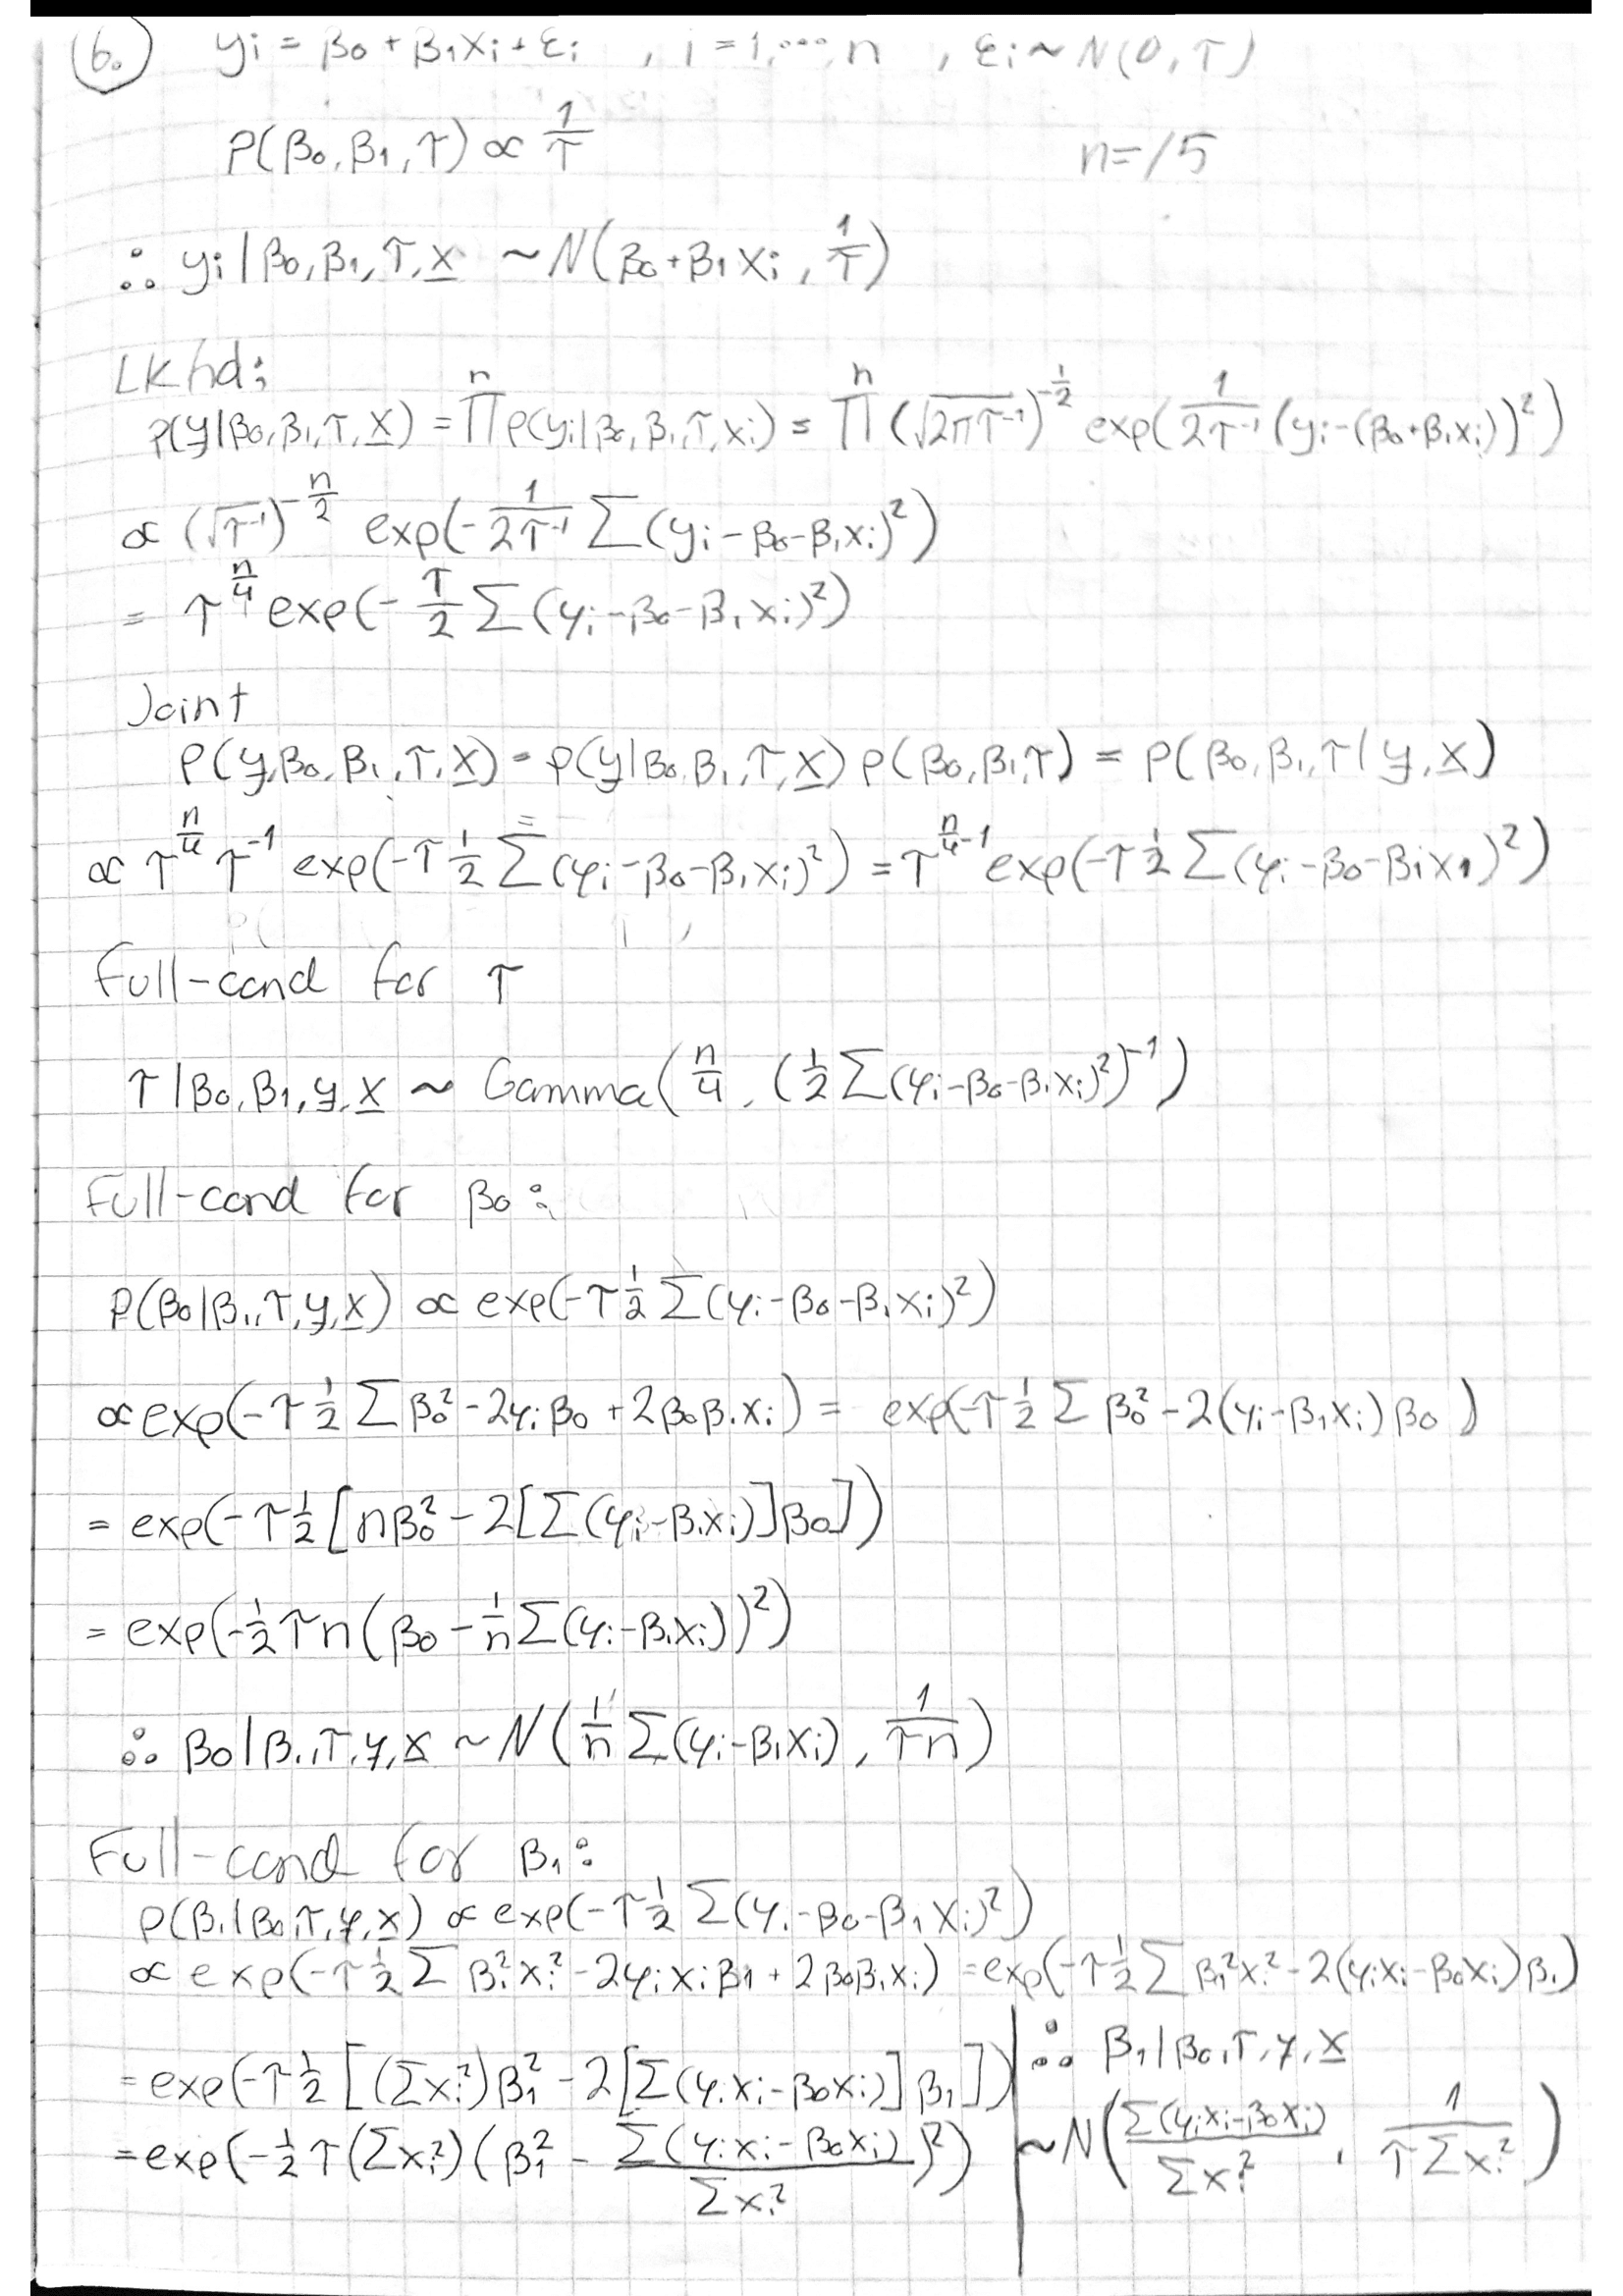 6. yi = β0 + β1xi + εi , i = 1,...,n , εi ~ N(0, τ)
P(β0, β1, τ) ∝ 1/τ n=15
∴ yi | β0, β1, τ, x ~ N(β0 + β1xi , 1/τ)
Lkhd:
p(y|β0, β1, τ, x) = ∏^n p(yi|β0, β1, τ, xi) = ∏^n (√(2πτ^-1))^(-1/2) exp(1/(2τ^-1) (yi - (β0 + β1xi))^2)
∝ (√τ^-1)^(-n/2) exp(-1/(2τ^-1) Σ(yi - β0 - β1xi)^2)
= τ^(n/4) exp(-τ/2 Σ(yi - β0 - β1xi)^2)
Joint
P(y, β0, β1, τ, x) = p(y|β0, β1, τ, x) p(β0, β1, τ) = p(β0, β1, τ | y, x)
∝ τ^(n/4) τ^-1 exp(-τ 1/2 Σ(yi - β0 - β1xi)^2) = τ^(n/4 - 1) exp(-τ 1/2 Σ(yi - β0 - β1x1)^2)
Full-cond for τ
τ | β0, β1, y, x ~ Gamma(n/4, (1/2 Σ(yi - β0 - β1xi)^2)^-1)
Full-cond for β0:
P(β0|β1, τ, y, x) ∝ exp(-τ 1/2 Σ(yi - β0 - β1xi)^2)
∝ exp(-τ 1/2 Σ β0^2 - 2yiβ0 + 2β0β1xi) = exp(-τ 1/2 Σ β0^2 - 2(yi - β1xi)β0)
= exp(-τ 1/2 [nβ0^2 - 2[Σ(yi - β1xi)]β0])
= exp(-1/2 τn(β0 - 1/n Σ(yi - β1xi))^2)
∴ β0|β1, τ, y, x ~ N(1/n Σ(yi - β1xi), 1/(τn))
Full-cond for β1:
P(β1|β0, τ, y, x) ∝ exp(-τ 1/2 Σ(yi - β0 - β1xi)^2)
∝ exp(-τ 1/2 Σ β1^2xi^2 - 2yixiβ1 + 2β0β1xi) = exp(-τ 1/2 Σ β1^2xi^2 - 2(yixi - β0xi)β1)
= exp(-τ 1/2 [(Σxi^2)β1^2 - 2[Σ(yixi - β0xi)]β1])
= exp(-1/2 τ(Σxi^2)(β1^2 - Σ(yixi - β0xi)/Σxi^2)^2)
∴ β1|β0, τ, y, x
~ N(Σ(yixi - β0xi)/Σxi^2 , 1/(τΣxi^2))